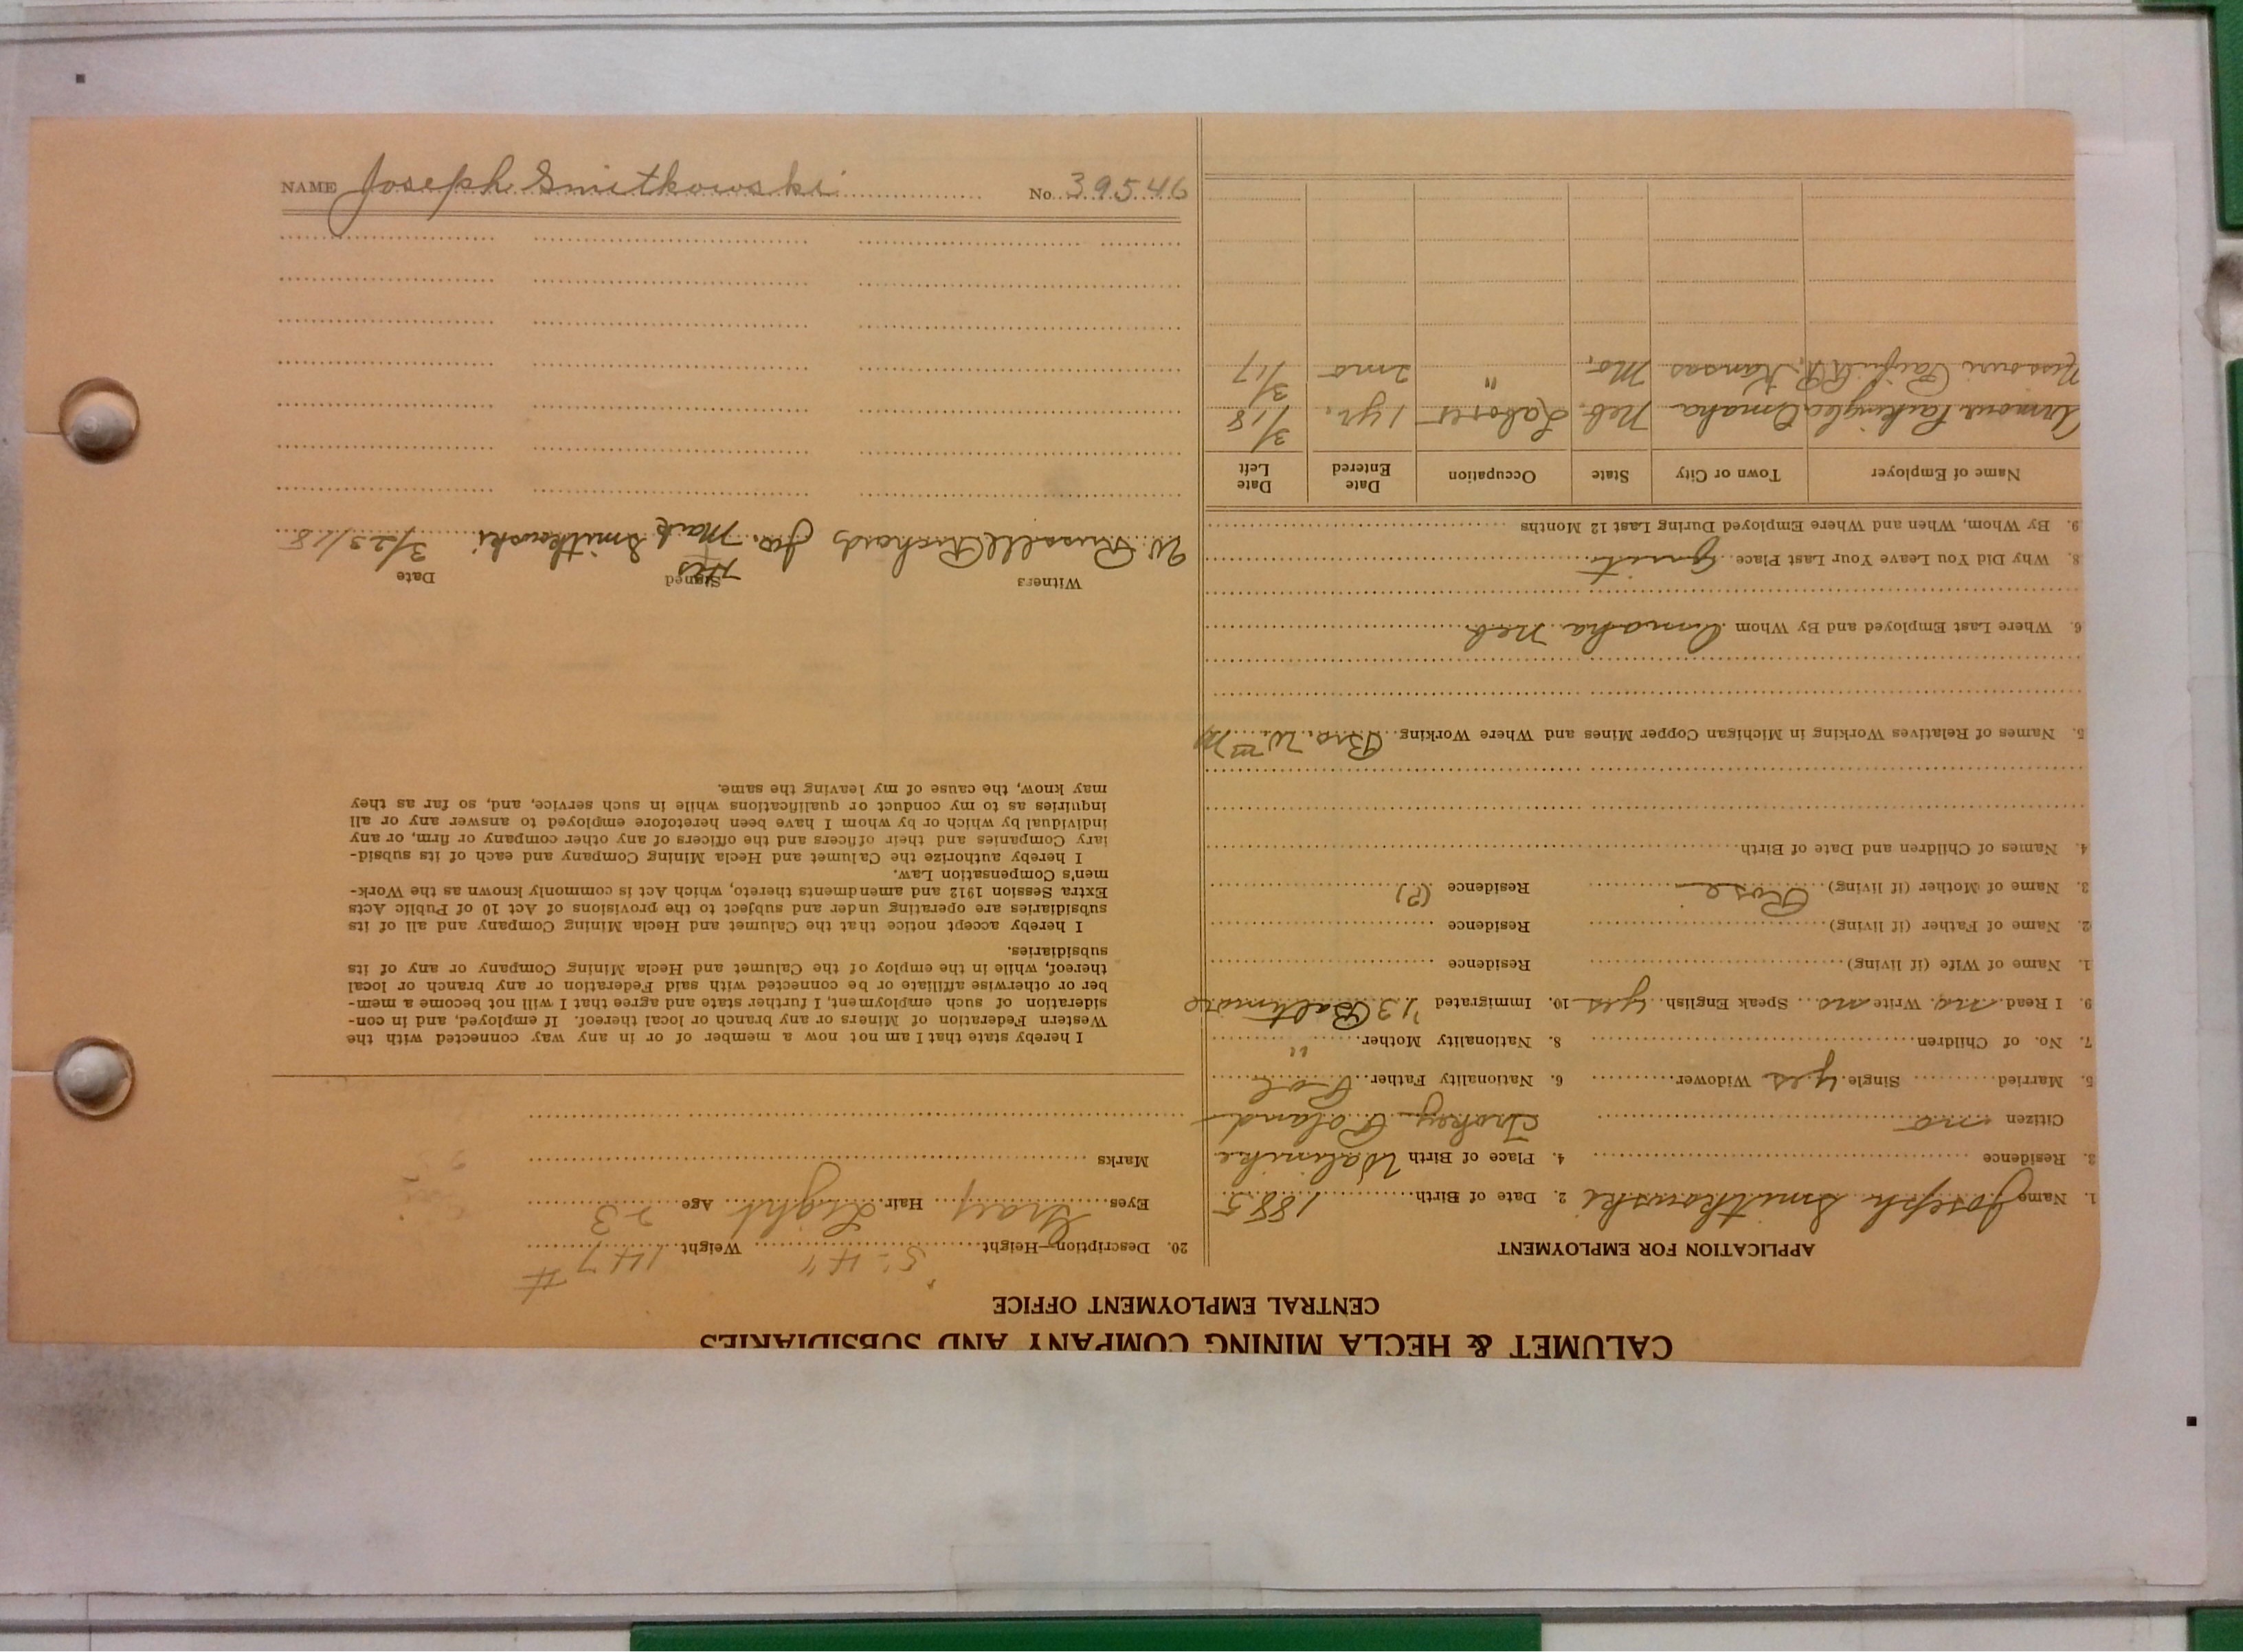 NAME Joseph Smitkowski No. 39546
CALUMET & HECLA MINING COMPANY AND SUBSIDIARIES
CENTRAL EMPLOYMENT OFFICE
APPLICATION FOR EMPLOYMENT
1. Name Joseph Smitkowski 2. Date of Birth 1885
3. Residence 4. Place of Birth
Citizen no Poland
5. Married Single yes Widower 6. Nationality Father Pol
7. No. of Children 8. Nationality Mother "
9. I Read no Write no Speak English yes 10. Immigrated '13 Baltimore
1. Name of Wife (if living) Residence
2. Name of Father (if living) Residence
3. Name of Mother (if living) Rose Residence (P)
4. Names of Children and Date of Birth
5. Names of Relatives Working in Michigan Copper Mines and Where Working Bro. W
6. Where Last Employed and By Whom Omaha Neb
8. Why Did You Leave Your Last Place Quit
9. By Whom, When and Where Employed During Last 12 Months
Name of Employer Town or City State Occupation Date Entered Date Left
Armour Packing Co Omaha Neb. Laborer 1 yr. 3/18
Missouri Pacific RR. Kansas Mo. " 2 mo 3/17
20. Description—Height 5'-4" Weight 147 #
Eyes Gray Hair Light Age 23
Marks
I hereby state that I am not now a member of or in any way connected with the
Western Federation of Miners or any branch or local thereof. If employed, and in con-
sideration of such employment, I further state and agree that I will not become a mem-
ber or otherwise affiliate or be connected with said Federation or any branch or local
thereof, while in the employ of the Calumet and Hecla Mining Company or any of its
subsidiaries.
I hereby accept notice that the Calumet and Hecla Mining Company and all of its
subsidiaries are operating under and subject to the provisions of Act 10 of Public Acts
Extra Session 1912 and amendments thereto, which Act is commonly known as the Work-
men's Compensation Law.
I hereby authorize the Calumet and Hecla Mining Company and each of its subsid-
iary Companies and their officers and the officers of any other company or firm, or any
individual by which or by whom I have been heretofore employed to answer any or all
inquiries as to my conduct or qualifications while in such service, and, so far as they
may know, the cause of my leaving the same.
Witness Signed Date
His
W. Russell Richards Jos. Mark Smitkowski 3/23/18